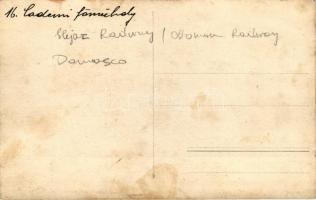 16. Cademi főműhely
Hejaz Railway / Ottoman Railway
Damasco